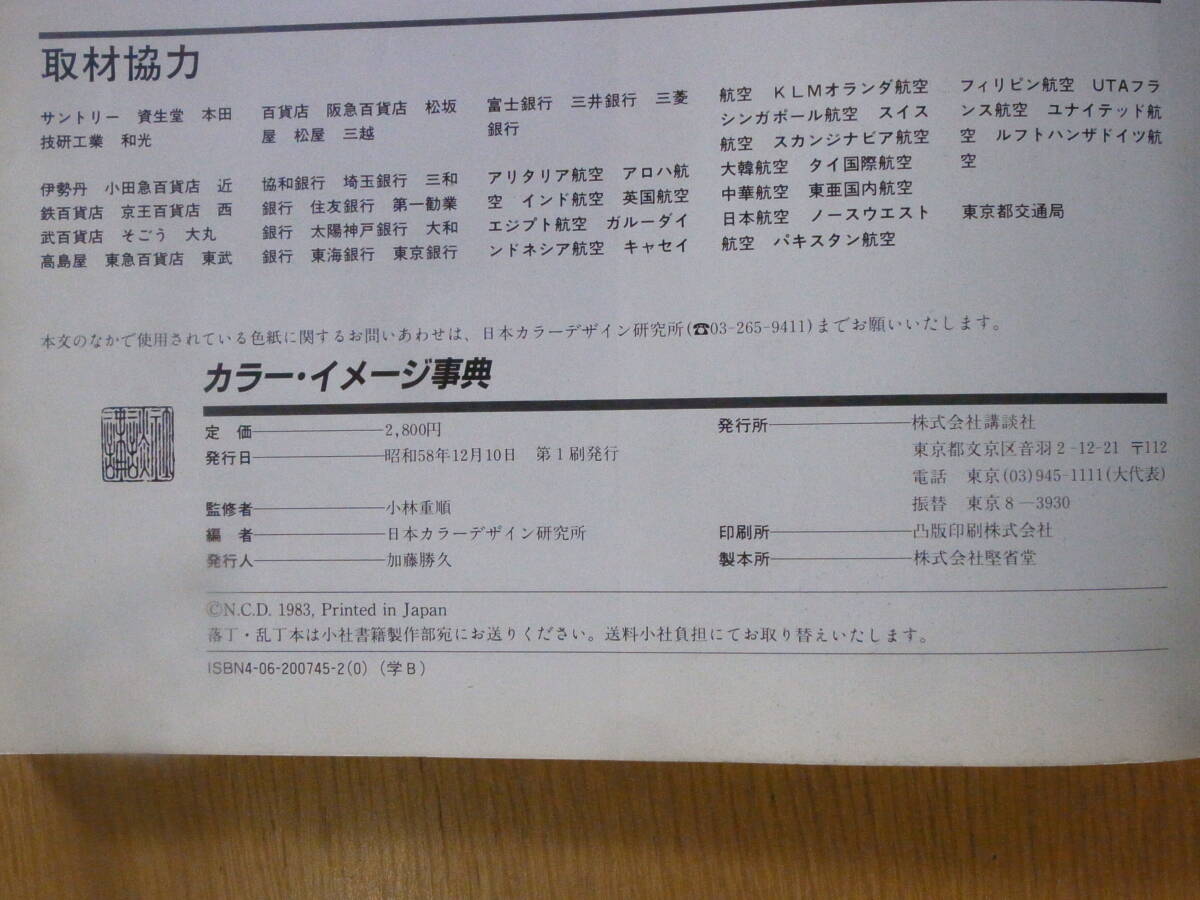 取材協力
サントリー　資生堂　本田
技研工業　和光
伊勢丹　小田急百貨店　近
鉄百貨店　京王百貨店　西
武百貨店　そごう　大丸
高島屋　東急百貨店　東武
百貨店　阪急百貨店　松坂
屋　松屋　三越
協和銀行　埼玉銀行　三和
銀行　住友銀行　第一勧業
銀行　太陽神戸銀行　大和
銀行　東海銀行　東京銀行
富士銀行　三井銀行　三菱
銀行
アリタリア航空　アロハ航
空　インド航空　英国航空
エジプト航空　ガルーダイ
ンドネシア航空　キャセイ
航空　KLMオランダ航空
シンガポール航空　スイス
航空　スカンジナビア航空
大韓航空　タイ国際航空
中華航空　東亜国内航空
日本航空　ノースウエスト
航空　パキスタン航空
フィリピン航空　UTAフラ
ンス航空　ユナイテッド航
空　ルフトハンザドイツ航
空
東京都交通局
本文のなかで使用されている色紙に関するお問いあわせは、日本カラーデザイン研究所(☎03-265-9411)までお願いいたします。
カラー・イメージ事典
定　価――2,800円
発行日――昭和58年12月10日　第1刷発行
監修者――小林重順
編　者――日本カラーデザイン研究所
発行人――加藤勝久
発行所――株式会社講談社
東京都文京区音羽2-12-21　〒112
電話　東京(03)945-1111(大代表)
振替　東京8―3930
印刷所――凸版印刷株式会社
製本所――株式会社堅省堂
©N.C.D. 1983, Printed in Japan
落丁・乱丁本は小社書籍製作部宛にお送りください。送料小社負担にてお取り替えいたします。
ISBN4-06-200745-2(0)（学B）